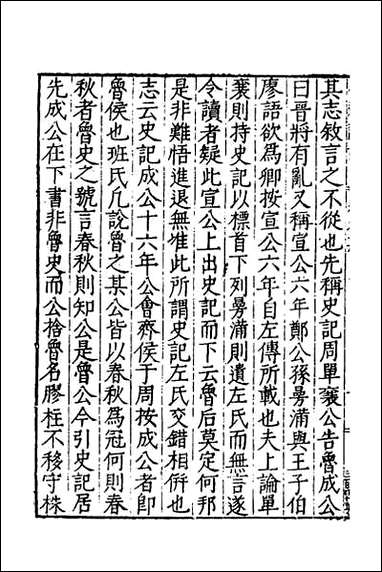 其志敘言之不從也先稱史記周單襄公告魯成公
曰晉將有亂又稱宣公六年鄭公孫曼滿與王子伯
廖語欲爲卿按宣公六年自左傳所載也夫上論單
襄則持史記以標首下列曼滿則遺左氏而無言遂
令讀者疑此宣公上出史記而下云魯后莫定何邦
是非難悟進退無准此所謂史記左氏交錯相併也
志云史記成公十六年公會齊侯于周按成公者即
魯侯也班氏凡說魯之某公皆以春秋爲冠何則春
秋者魯史之號言春秋則知公是魯公今引史記居
先成公在下書非魯史而公捨魯名膠柱不移守株